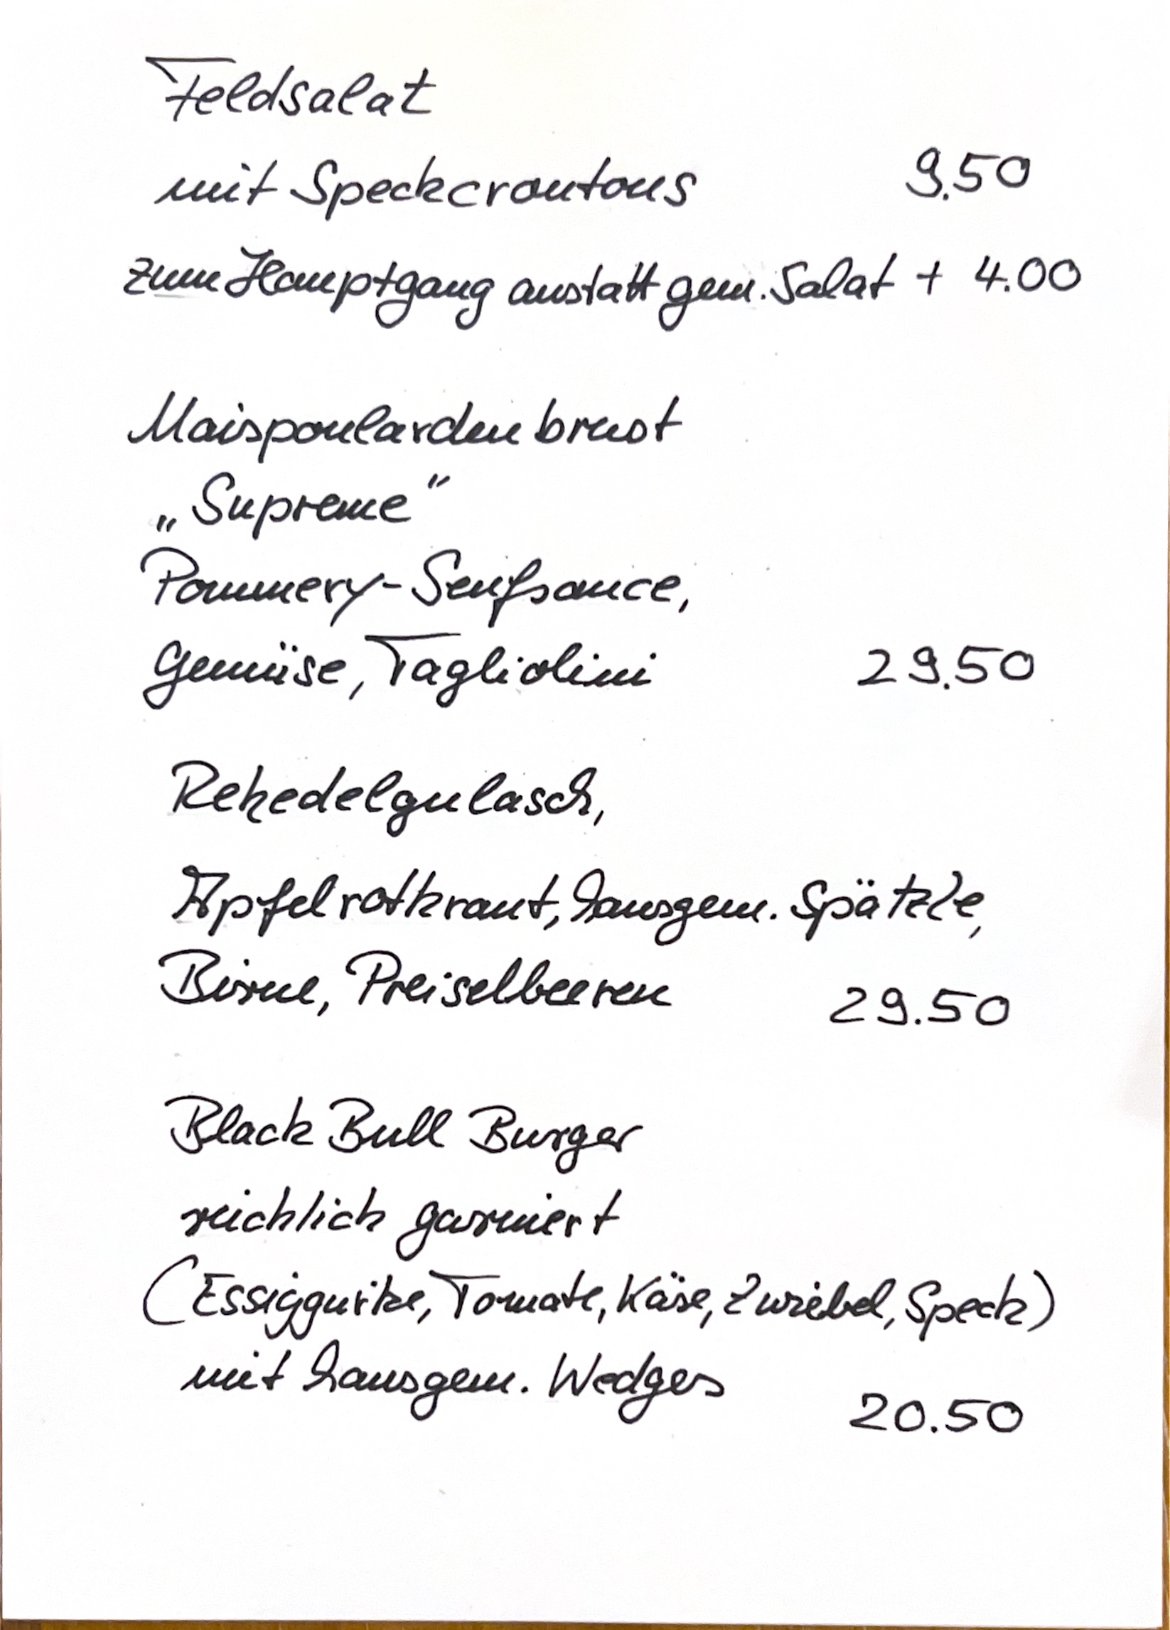 Feldsalat
mit Speckcroutons 9.50
zum Hauptgang anstatt gem. Salat + 4.00
Maispoulardenbrust
„Supreme“
Pommery-Senfsauce,
Gemüse, Tagliolini 29.50
Rehedelgulasch,
Apfelrotkraut, hausgem. Spätzle,
Birne, Preiselbeeren 29.50
Black Bull Burger
reichlich garniert
(Essiggurke, Tomate, Käse, Zwiebel, Speck)
mit hausgem. Wedges
20.50